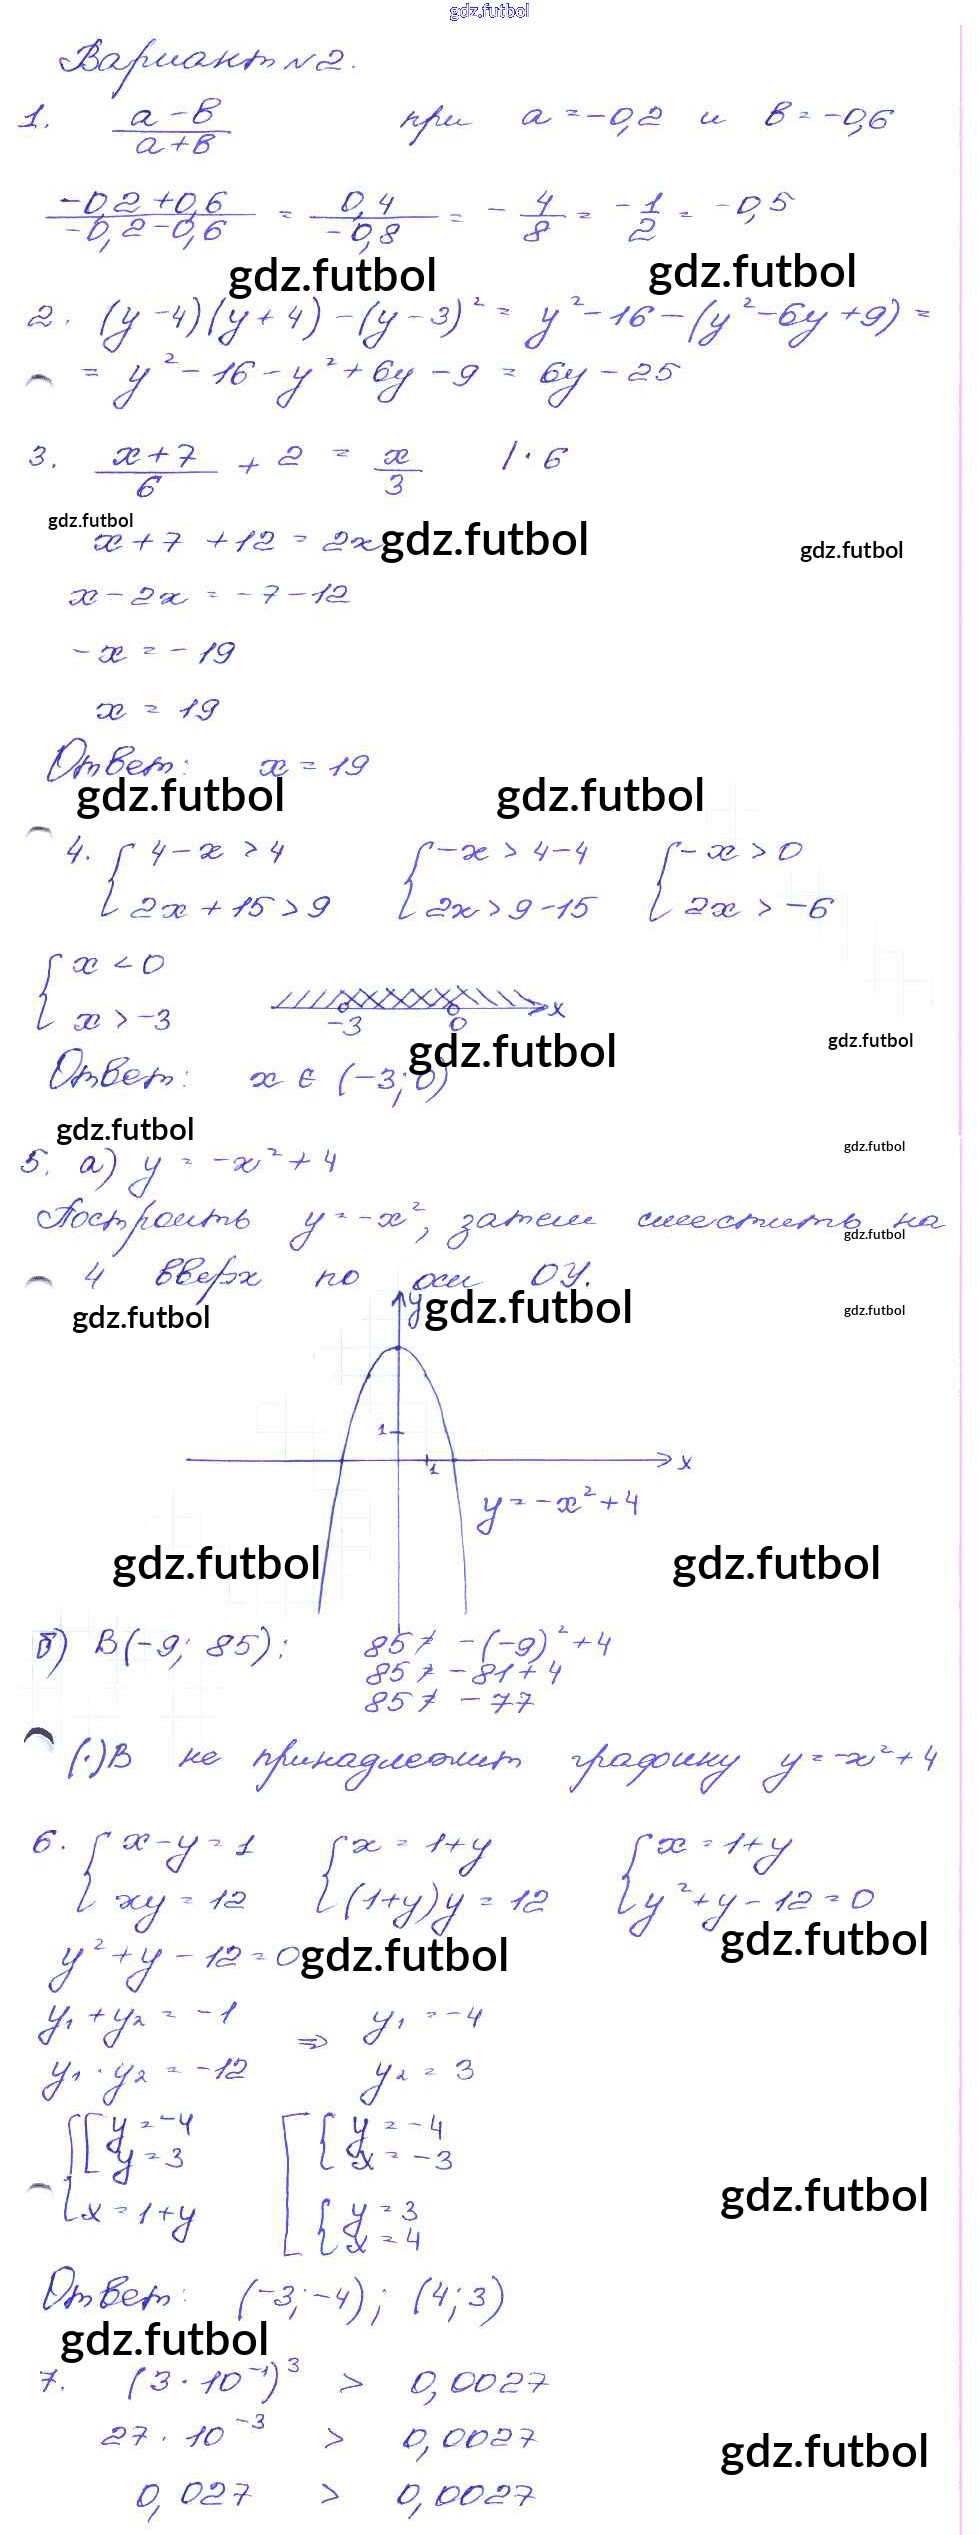 gdz.futbol
Вариант №2.
1. (a-в)/(a+в) при a=-0,2 и в=-0,6
(-0,2+0,6)/(-0,2-0,6) = 0,4/(-0,8) = -4/8 = -1/2 = -0,5
gdz.futbol gdz.futbol
2. (y-4)(y+4)-(y-3)² = y²-16-(y²-6y+9) =
= y²-16-y²+6y-9 = 6y-25
3. (x+7)/6 + 2 = x/3 |·6
gdz.futbol
x+7+12=2x gdz.futbol gdz.futbol
x-2x=-7-12
-x=-19
x=19
Ответ: x=19
gdz.futbol gdz.futbol
4. { 4-x>4 { -x>4-4 { -x>0
2x+15>9 2x>9-15 2x>-6
{ x<0
x>-3 -3 0 x
gdz.futbol gdz.futbol
Ответ: x∈(-3;0)
gdz.futbol
gdz.futbol
5. а) y=-x²+4
Построить y=-x², затем сместить на
gdz.futbol
4 вверх по оси OY.
gdz.futbol y gdz.futbol gdz.futbol
1
1 x
y=-x²+4
gdz.futbol gdz.futbol
б) B(-9; 85): 85≠-(-9)²+4
85≠-81+4
85≠-77
(·)B не принадлежит графику y=-x²+4
6. { x-y=1 { x=1+y { x=1+y
xy=12 (1+y)y=12 y²+y-12=0
gdz.futbol
y²+y-12=0 gdz.futbol
y₁+y₂=-1 ⇒ y₁=-4
y₁·y₂=-12 y₂=3
{ [ y=-4 [ { y=-4
y=3 x=-3
gdz.futbol
x=1+y { y=3
x=4
Ответ: (-3;-4); (4;3)
gdz.futbol
7. (3·10⁻¹)³ > 0,0027
27·10⁻³ > 0,0027
gdz.futbol
0,027 > 0,0027